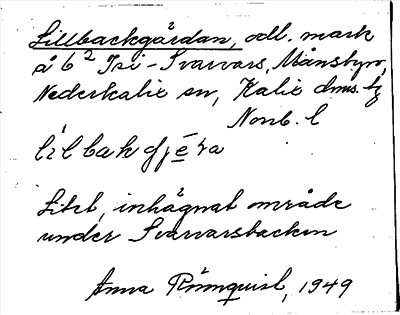 Lillbackgärdan, odl. mark
å 6² Isi-Svarvars, Månsbyn,
Nederkalix sn, Kalix dms. tg
Norrb. l
lilbakgjéra
Litet, inhägnat område
under Svarvarsbacken
Anna Rönnquist, 1949